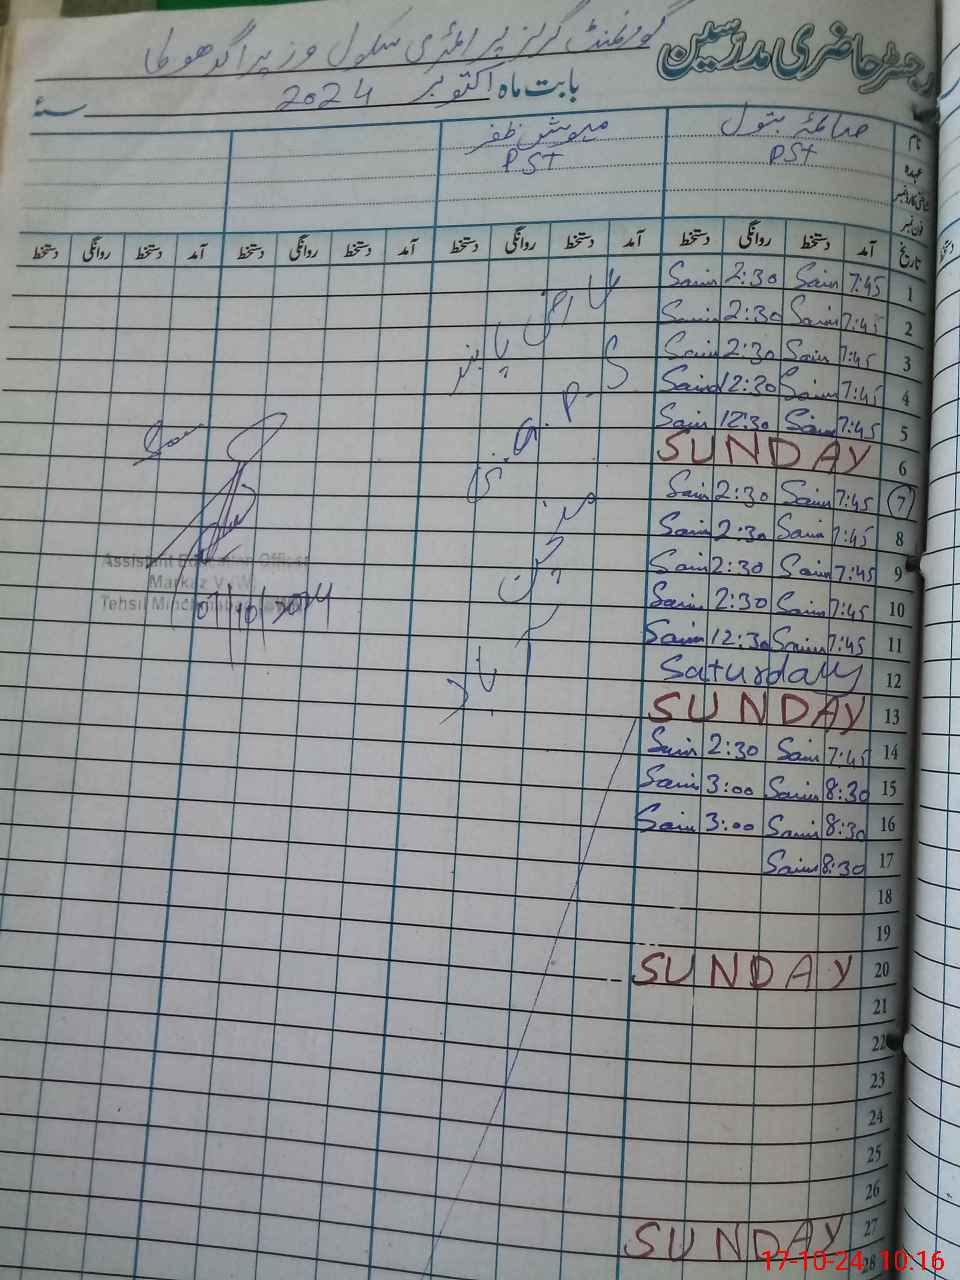 رجسٹر حاضری مدرسین
گورنمنٹ گرلز پرائمری سکول وزیرا گدھوکا
بابت ماہ اکتوبر 2024 سنہ
نام صائمہ بتول مہوش ظفر
عہدہ PST PST
شناختی کارڈ نمبر
فون نمبر
تاریخ آمد دستخط روانگی دستخط آمد دستخط روانگی دستخط آمد دستخط روانگی دستخط آمد دستخط روانگی دستخط
1 7:45 Saim 2:30 Saim
2 7:45 Saim 2:30 Saim
3 7:45 Saim 2:30 Saim
4 7:45 Saim 12:30 Saim
5 7:45 Saim 12:30 Saim
6 SUNDAY
7 7:45 Saim 2:30 Saim
8 7:45 Saim 2:30 Saim
9 7:45 Saim 2:30 Saim
10 7:45 Saim 2:30 Saim
11 7:45 Saim 12:30 Saim
12 Saturday
13 SUNDAY
14 7:45 Saim 2:30 Saim
15 8:30 Saim 3:00 Saim
16 8:30 Saim 3:00 Saim
17 8:30 Saim
18
19
20 SUNDAY
21
22
23
24
25
26
27 SUNDAY
28
Assistant Education Officer
Markaz
Tehsil
07/10/2024
17-10-24 10:16